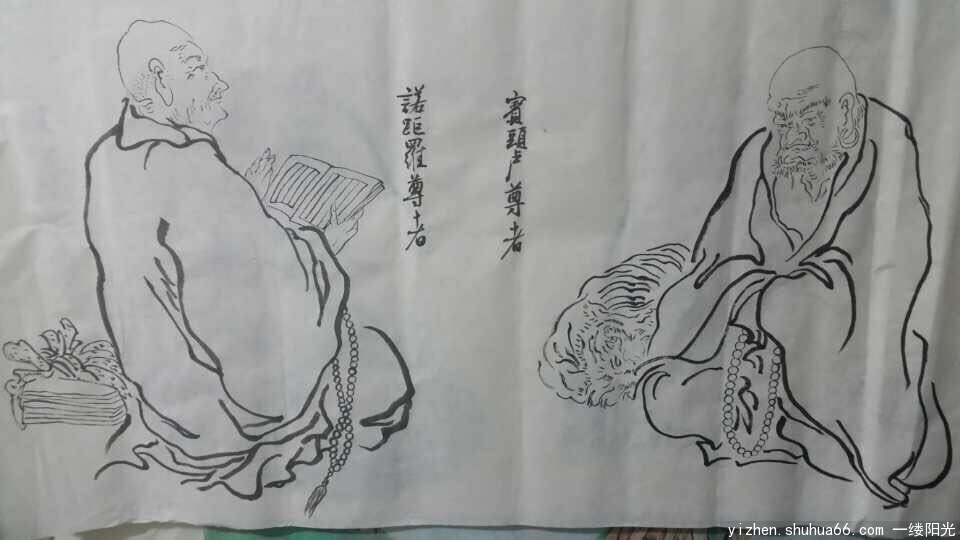 諾距羅尊者
賓頭卢尊者
yizhen.shuhua66.com 一缕阳光